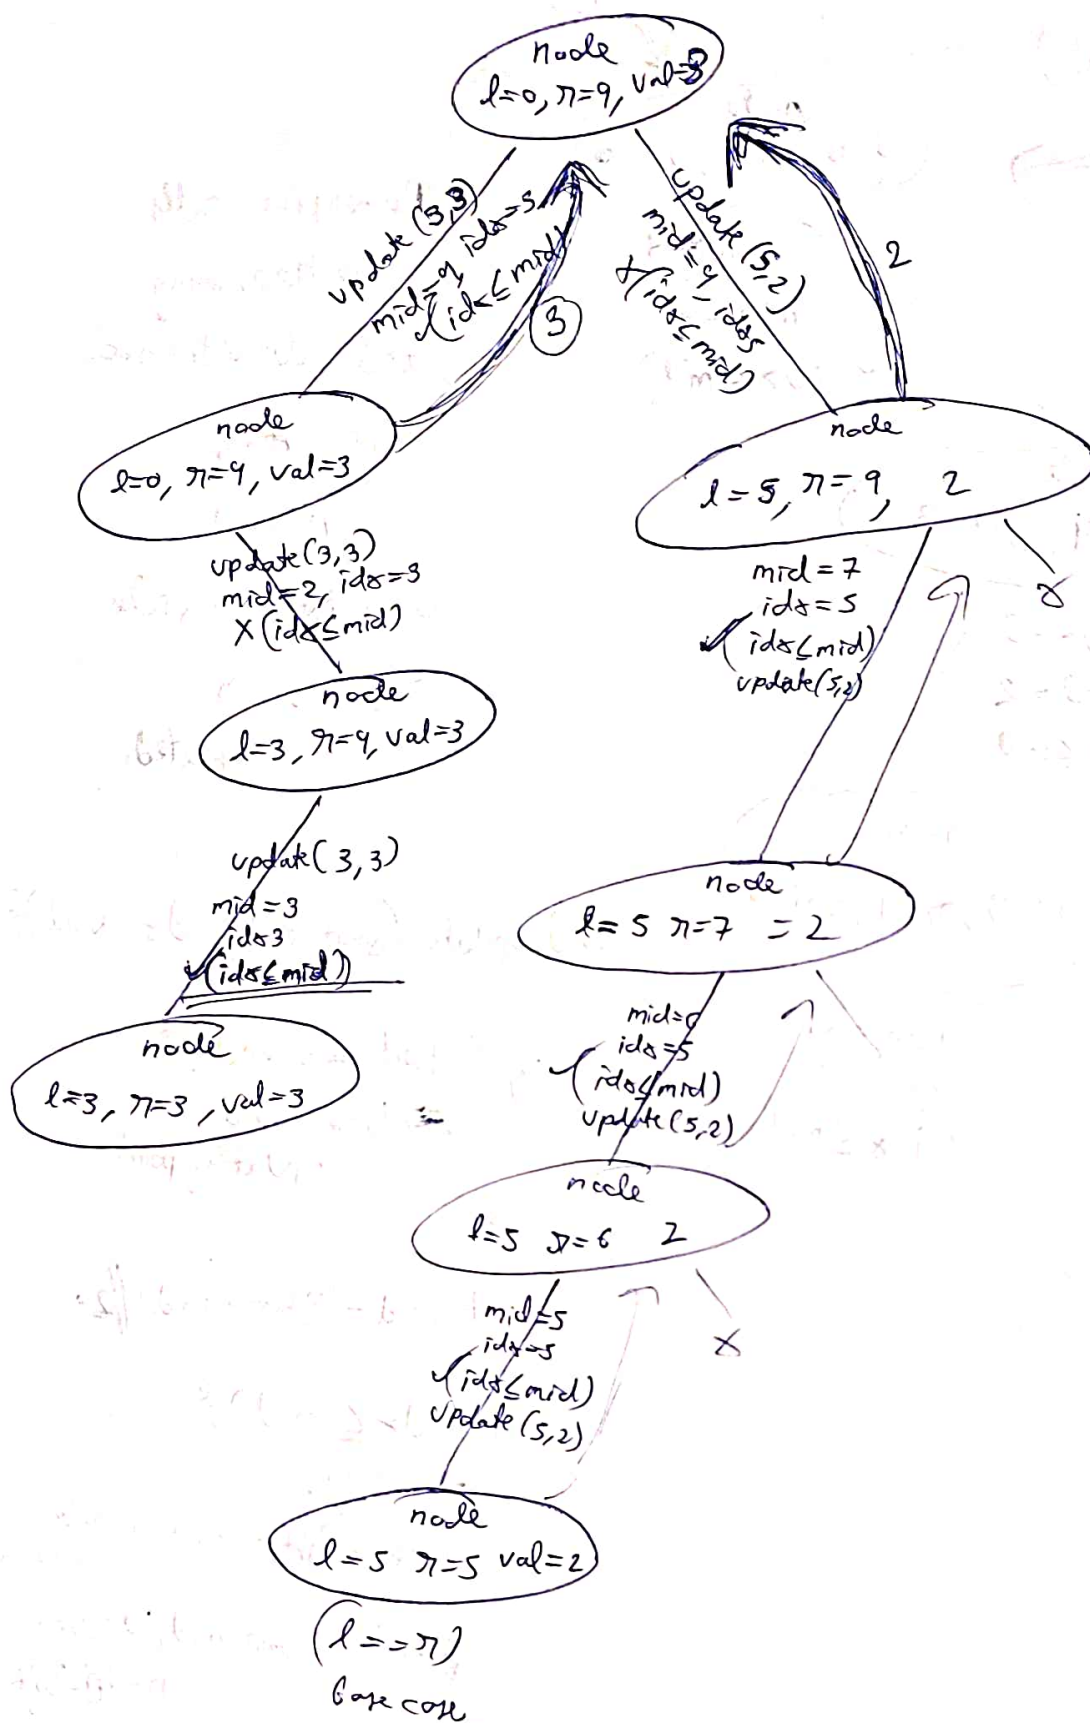 node
l=0, r=9, val=3
update (3,3)
mid=4, idx=5
✓(idx≤mid)
3
update (5,2)
mid=4, idx5
X(idx≤mid)
2
node
l=0, r=4, val=3
node
l=5, r=9, 2
update(3,3)
mid=2, idx=3
X(idx≤mid)
mid=7
idx=5
✓(idx≤mid)
update(5,2)
x
node
l=3, r=4, val=3
update(3,3)
mid=3
idx3
✓(idx≤mid)
node
l=5 r=7 =2
node
l=3, r=3, val=3
mid=6
idx=5
✓(idx≤mid)
update(5,2)
node
l=5 r=6 2
mid=5
idx=5
✓(idx≤mid)
update(5,2)
x
node
l=5 r=5 val=2
(l==r)
base case